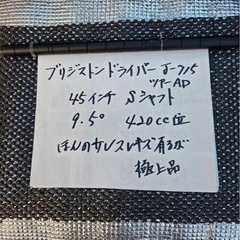 ブリジストンドライバー J-715
ツアーAD
45インチ Sシャフト
9.5° 420cc位
ほんのサレスレキズ有るが
極上品